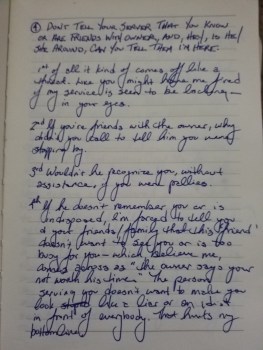 ④ DON'T TELL YOUR SERVER THAT YOU KNOW
OR ARE FRIENDS WITH OWNER, AND, HEY, IS HE/
SHE AROUND, CAN YOU TELL THEM I'M HERE.
1st of all it kind of comes off like a
threat. Like you might have me fired
if my service is seen to be lacking —
in your eyes.
2nd If you're friends with the owner, why
didn't you call to tell him you were
stopping by.
3rd Wouldn't he recognize you, without
assistance, if you were pallies.
4th If he doesn't remember you or is
indisposed, I'm forced to tell you
& your friends/family that this "friend"
doesn't want to see you or is too
busy for you — which believe me,
comes across as "the owner says your
not worth his time." The person
serving you doesn't want to make you
look like a liar or an idiot
in front of everybody. That hurts my
bottom line.